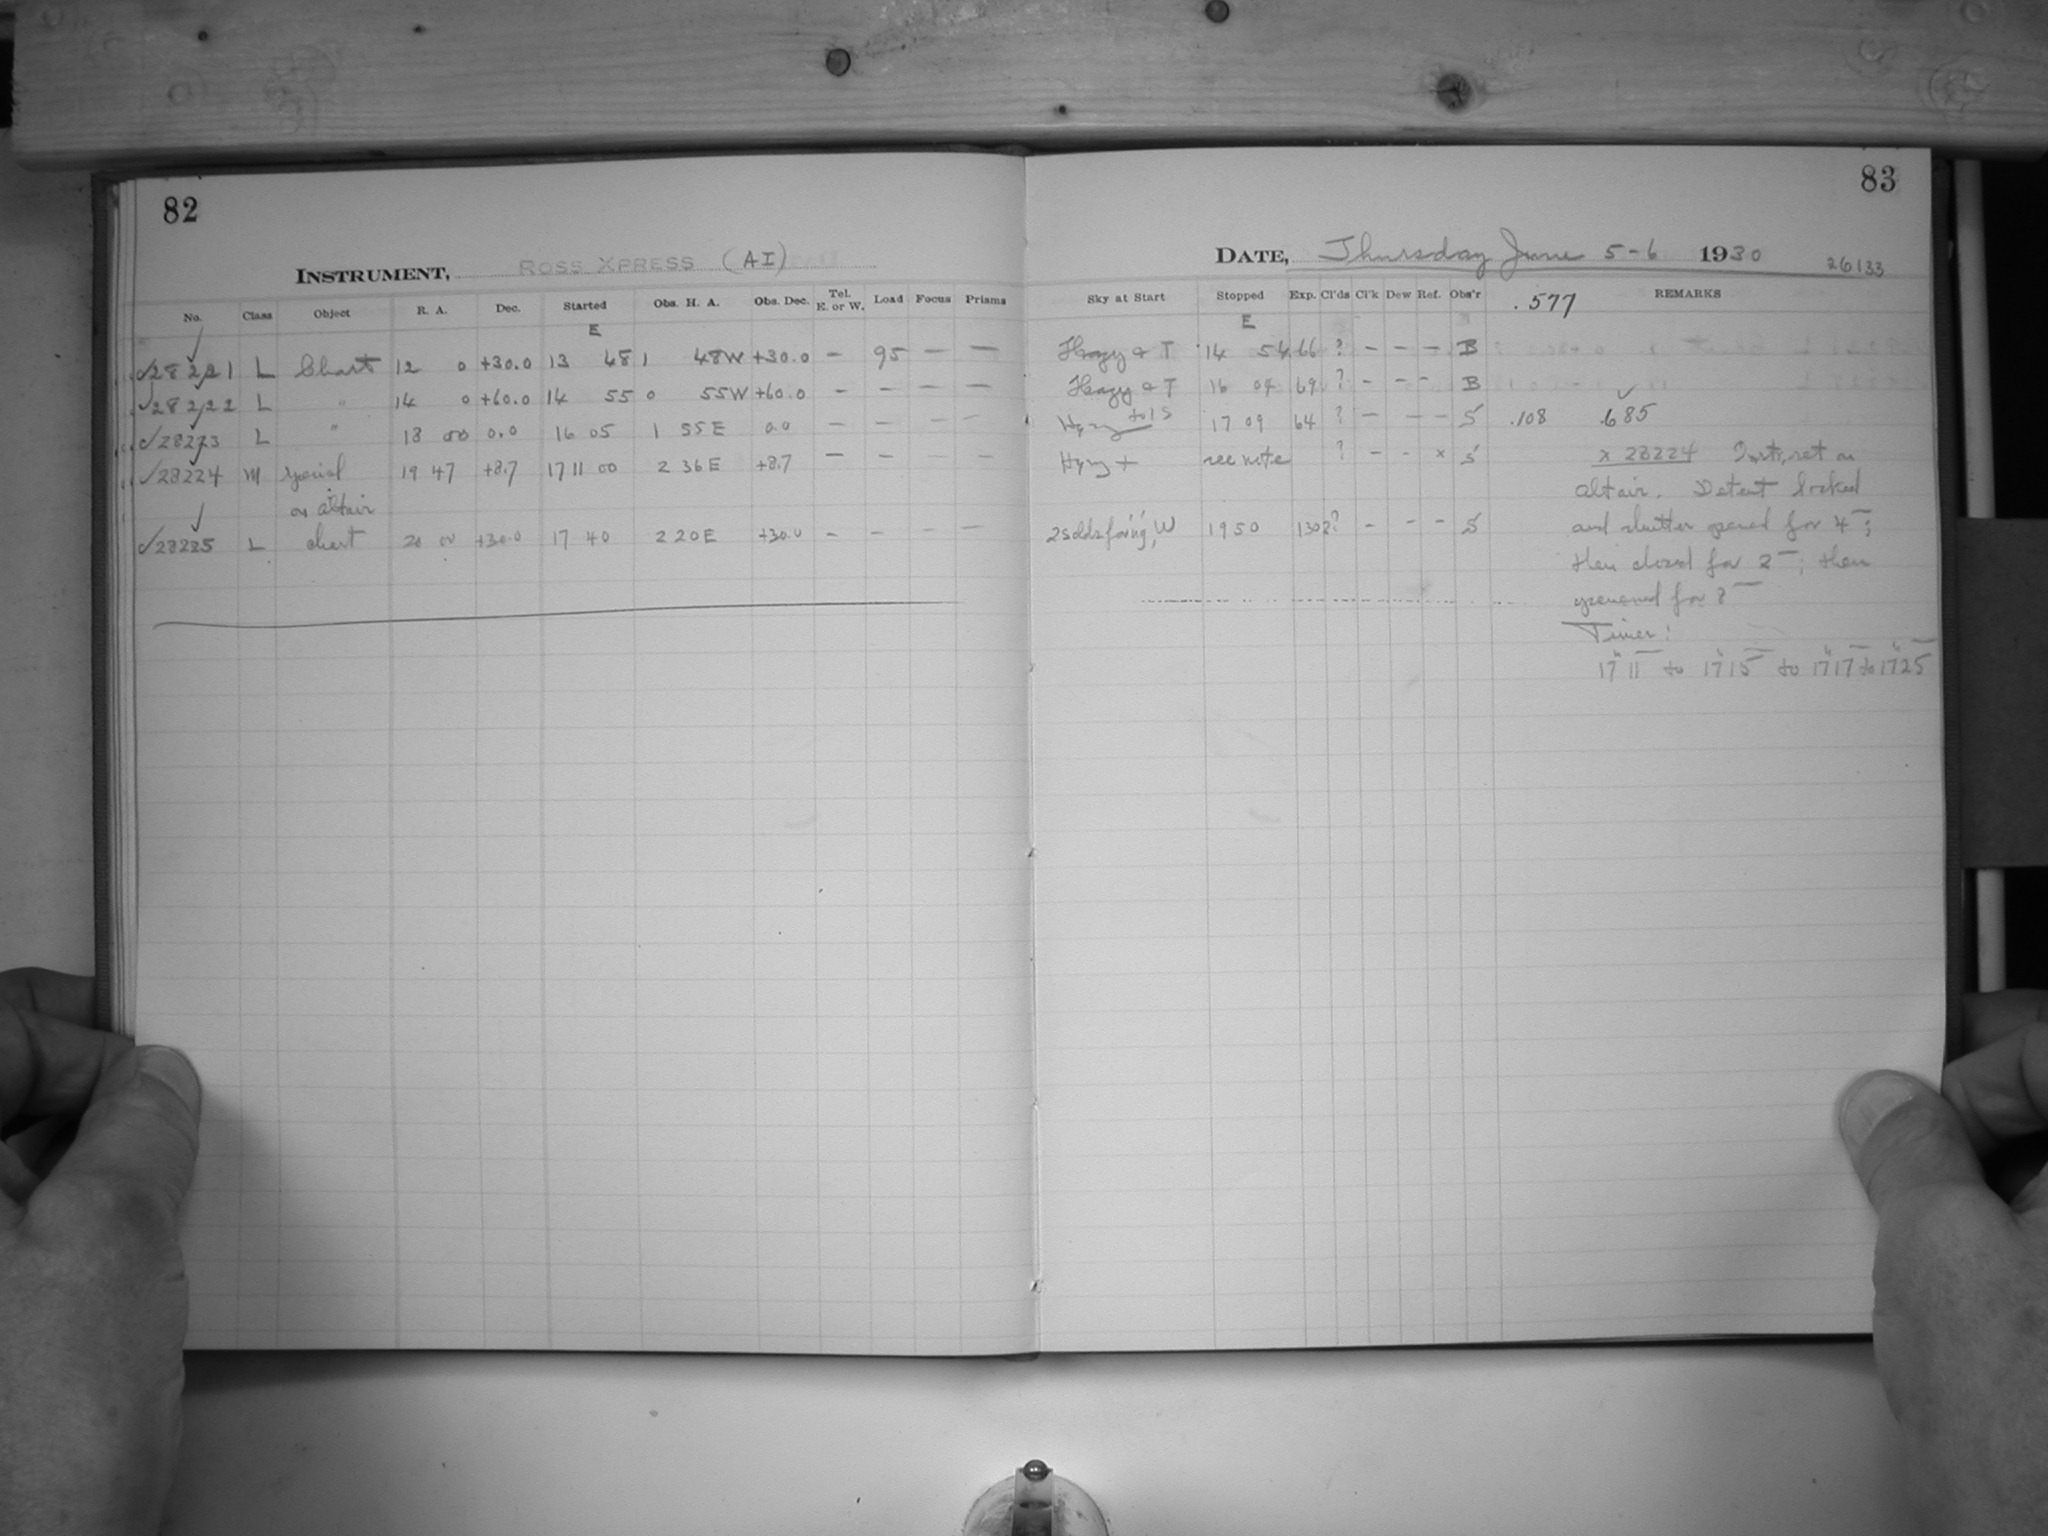 82
INSTRUMENT, ROSS XPRESS (AI)
No. Class Object R. A. Dec. Started Obs. H. A. Obs. Dec. Tel. E. or W. Load Focus Prisms
E
✓28221 L Chart 12 0 +30.0 13 48 1 48W +30.0 – 95 – –
✓28222 L " 14 0 +60.0 14 55 0 55W +60.0 – – – –
✓28223 L " 18 00 0.0 16 05 1 55E 0.0 – – – –
✓28224 M special 19 47 +8.7 17 11 00 2 36E +8.7 – – – –
on Altair
✓28225 L chart 20 00 +30.0 17 40 2 20E +30.0 – – – –
83
DATE, Thursday June 5-6 1930 26133
Sky at Start Stopped Exp. Cl'ds Cl'k Dew Ref. Obs'r .577 REMARKS
E
Hazy & T 14 54 66 ? – – – B
Hazy & T 16 04 69 ? – – – B
Hazy to 15 17 09 64 ? – – – S .108 .685
Hazy + see note ? – – x S x 28224 Instr. set on
Altair. Detent locked
W 19 50 130 ? – – – S and shutter opened for 4m;
then closed for 2m; then
for 8m
Times:
17h11m to 17h15m to 17h17m to 17h25m